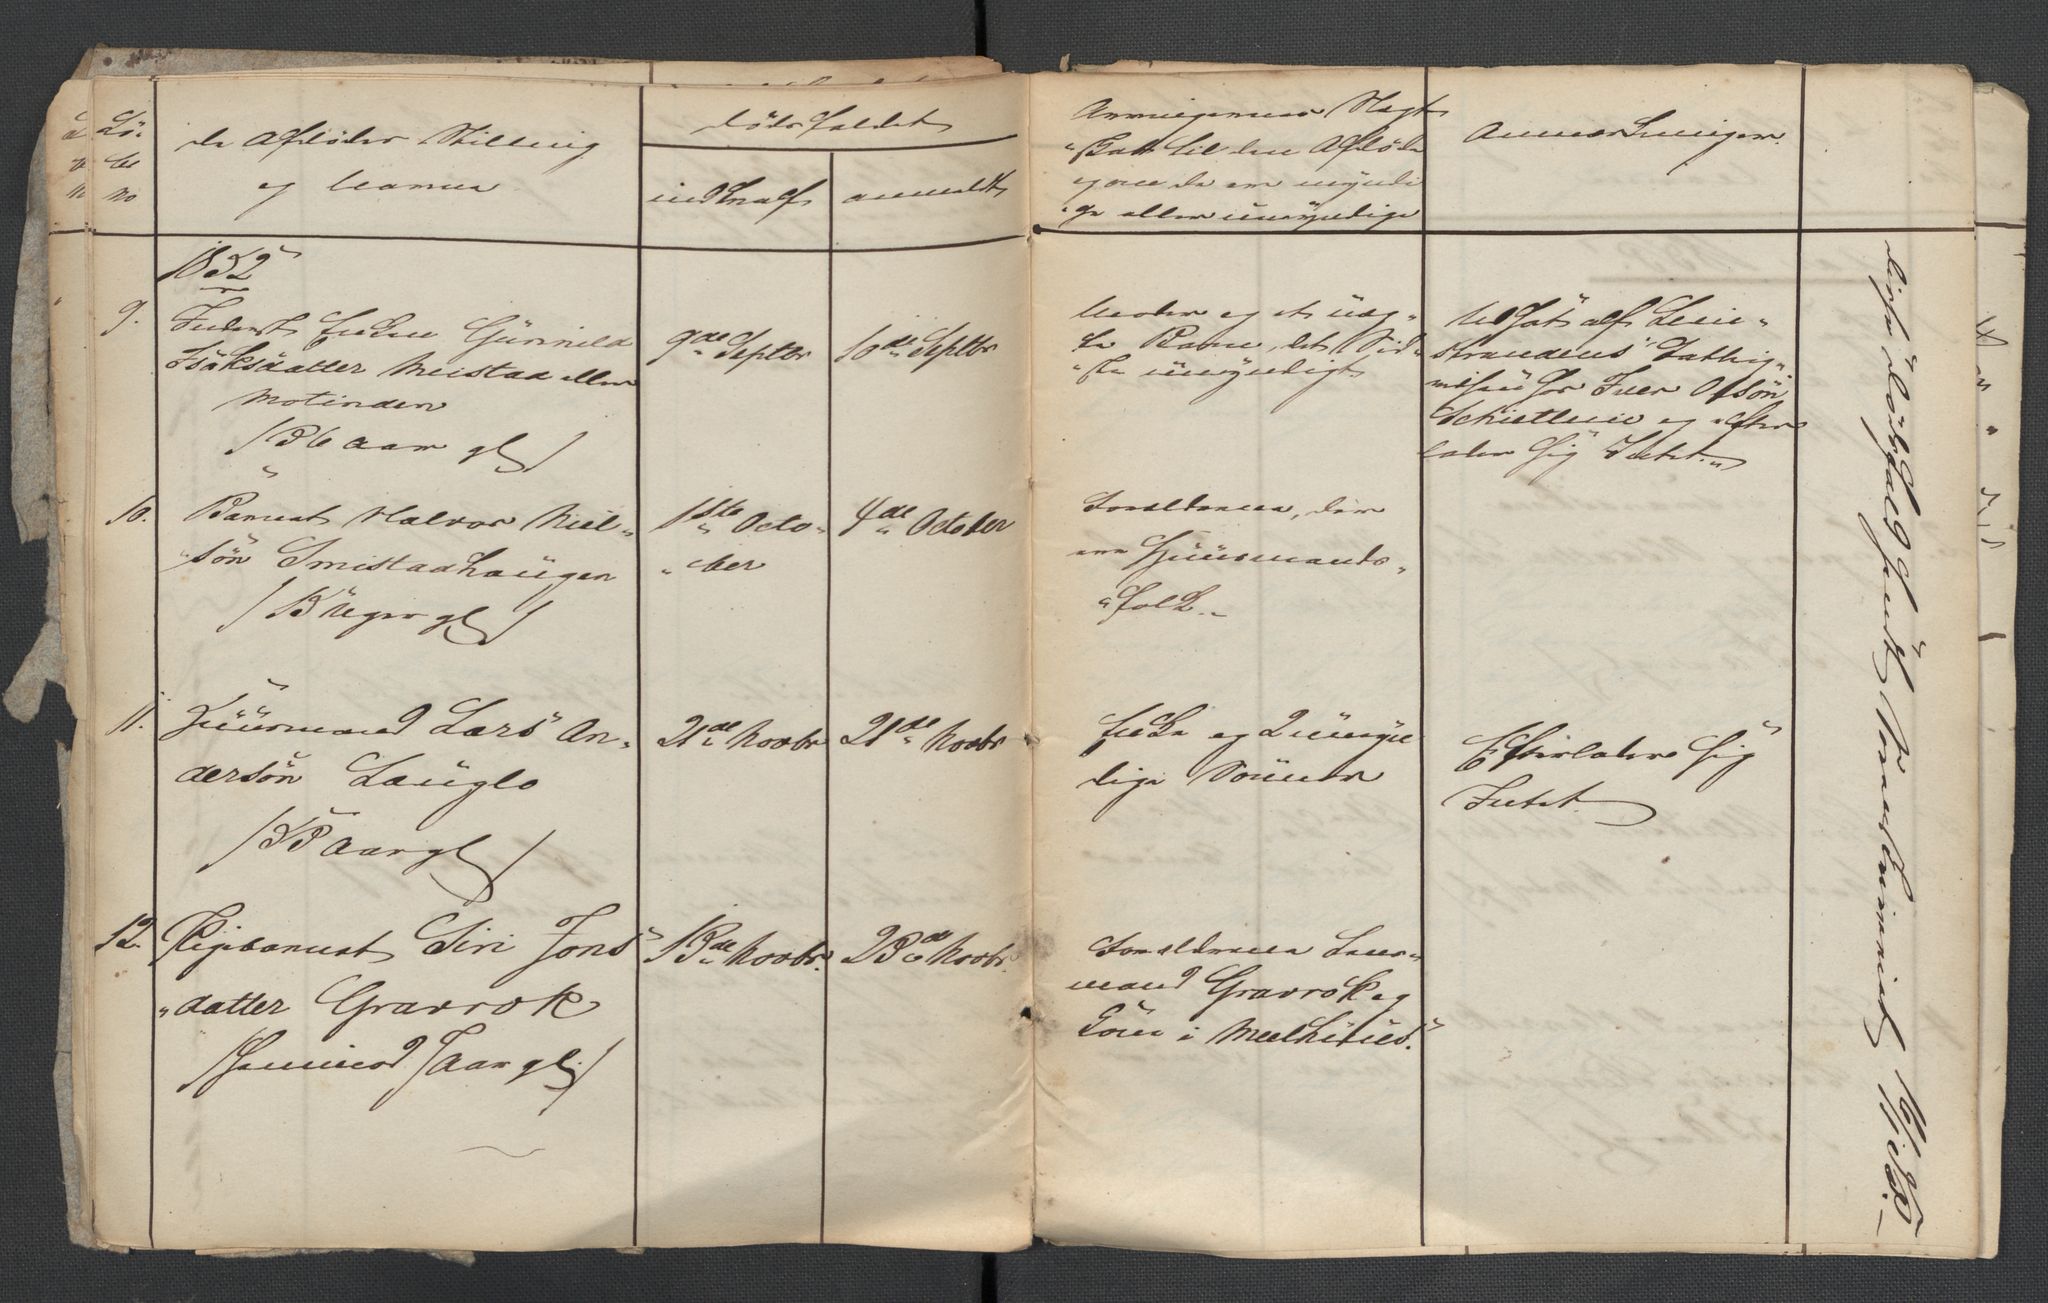 Lö-
be
No
de Afdødes Stilling
og Navne
Dödsfaldet
indtraf
anmeldt
Arvingernes Slægt
skab til den Afdøde
og om de ere myndi
ge eller umyndige
Anmærkninger.
1852
9.
Inderst Enken Gunnild
Isaksdatter Meistad eller
Motinden
/36 Aar gl/
9de Septbr
10de Septbr
Moder og et uæg-
te Barn, det Sid-
ste umyndigt
Udgåt af Lein-
strandens Fattig-
Iver Olsön
og efter
lader sig Intet.
10.
Barnet Halvor Niel-
sön Smistadhaugen
/13 Uger gl/
1ste Octo-
ber
4de October
Forældrene, der
ere Huusmands-
folk.
11.
Huusmand Lars An-
dersön Lauglo
/53 Aar gl/
21de Novbr
21de Novbr
Enke og 2 umyn
dige Sönner
Efterlader sig
Intet.
12.
Pigebarnet Siri Jons
datter Gravrok
/henimod 7 Aar gl./
13de Novbr.
23de Novbr.
Forældrene Leer-
mand Gravrok og
Kone i Meelhuus.